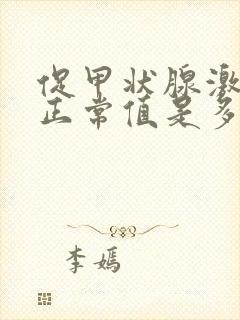 促甲状腺激
正常值是多
李嫣